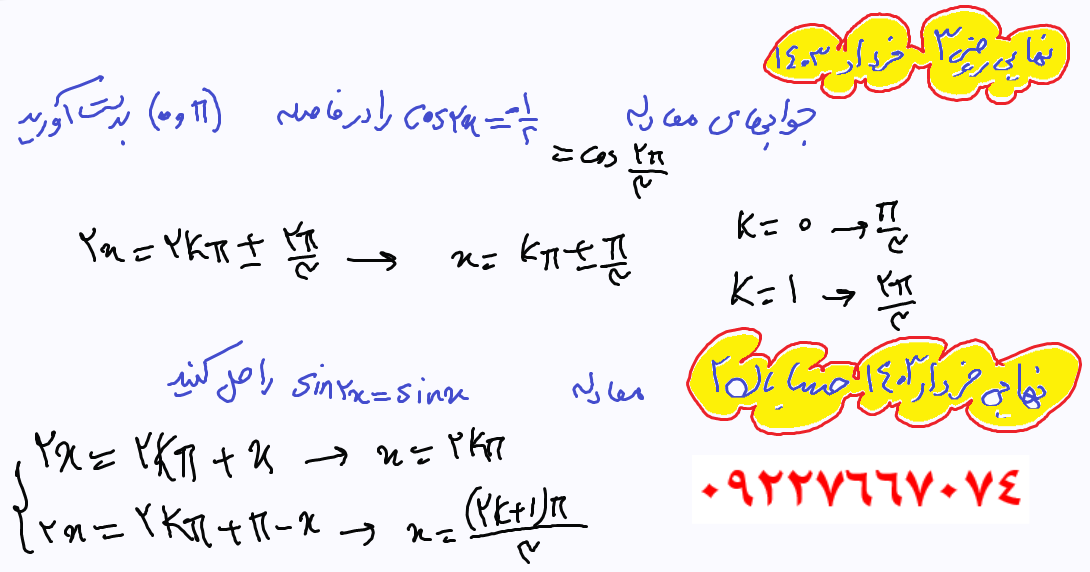 نهایی ریاضی ۳ - خرداد ۱۴۰۳
جوابهای معادله cos۲x = -۱/۲ را در فاصله (۰ و π) بدست آورید
= cos ۲π/۳
۲x = ۲kπ ± ۲π/۳ → x = kπ ± π/۳
k = ۰ → π/۳
k = ۱ → ۲π/۳
نهایی خرداد ۱۴۰۳ حسابان ۲
معادله sin۲x = sinx را حل کنید
۲x = ۲kπ + x → x = ۲kπ
۲x = ۲kπ + π - x → x = (۲k+۱)π/۳
۰۹۲۲۷۶۶۷۰۷۴